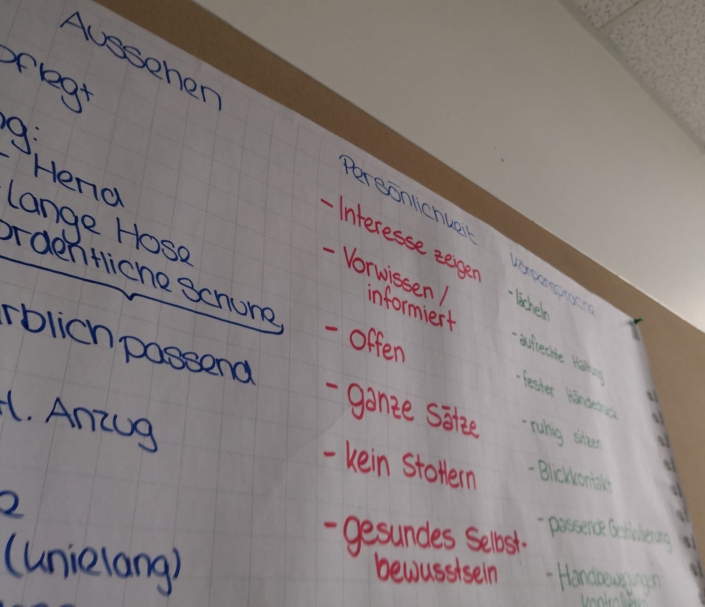 Aussehen
pflegt
g:
- Hemd
lange Hose
ordentliche Schuhe
rblich passend
tl. Anzug
(knielang)
Persönlichkeit
- Interesse zeigen
- Vorwissen /
informiert
- Offen
- ganze Sätze
- kein Stottern
- gesundes Selbst-
bewusstsein
Körpersprache
- lächeln
- aufrechte Haltung
- fester Händedruck
- ruhig sitzen
- Blickkontakt
- passende Gestikulierung
- Handbewegungen